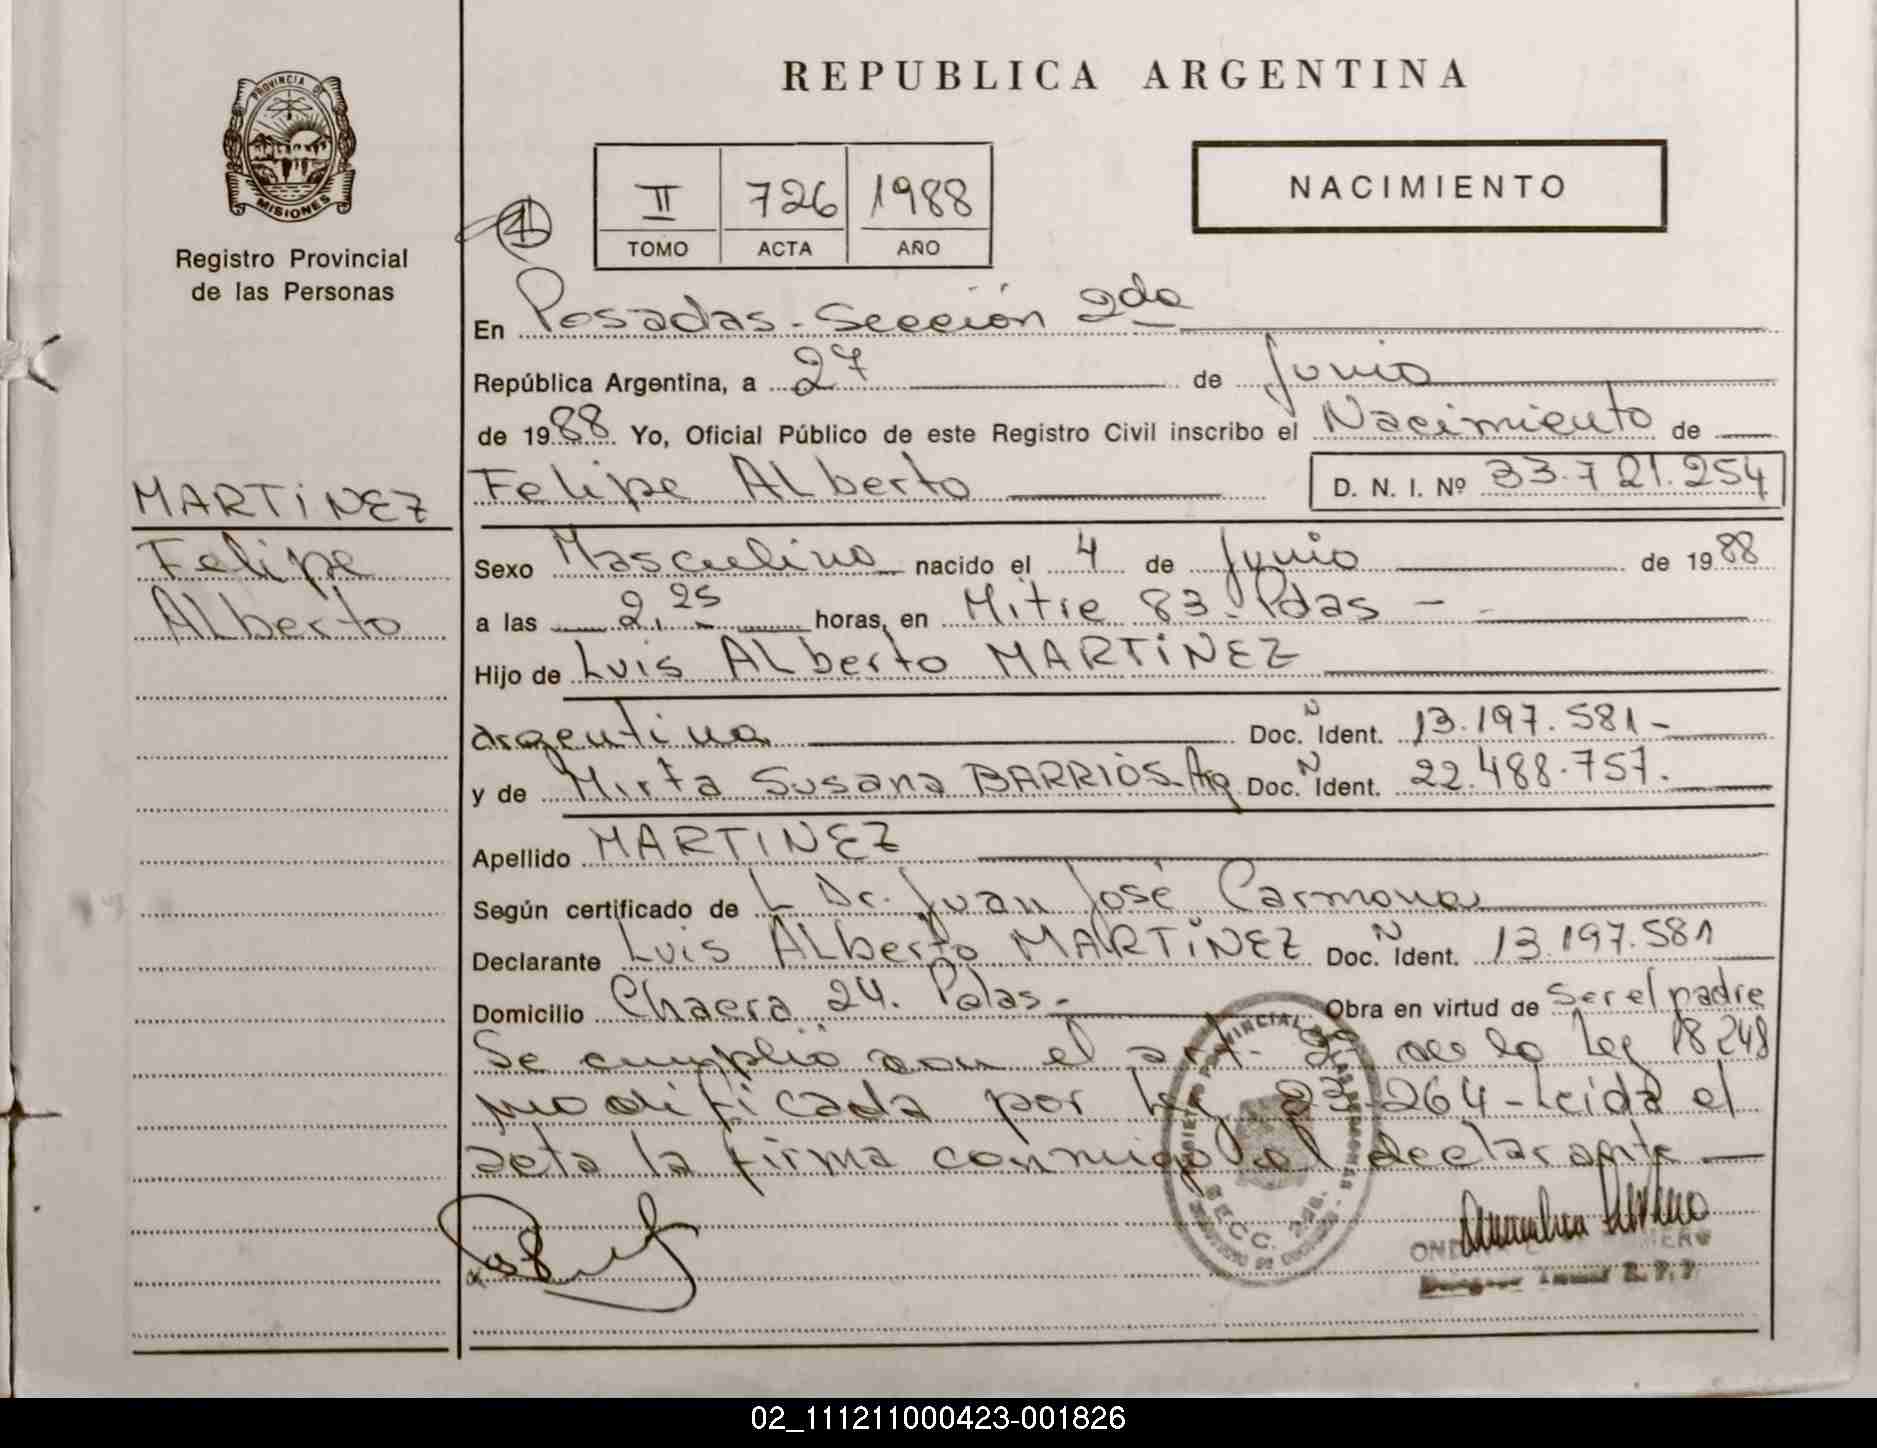 REPUBLICA ARGENTINA
PROVINCIA DE
MISIONES
Registro Provincial
de las Personas
II 726 1988
TOMO ACTA AÑO
NACIMIENTO
En Posadas - Sección 2da
República Argentina, a 27 de Junio
de 1988 Yo, Oficial Público de este Registro Civil inscribo el Nacimiento de
Felipe ALberto D. N. I. Nº 33.721.254
MARTiNEZ
Felipe
ALberto
Sexo Masculino nacido el 4 de Junio de 1988
a las 2,25 horas, en Mitre 83. Pdas -
Hijo de Luis ALberto MARTiNEZ
argentino Doc. N Ident. 13.197.581-
y de Mirta Susana BARRIOS Arg Doc. N Ident. 22.488.757.
Apellido MARTINEZ
Según certificado de L Dr. Juan José Carmona
Declarante Luis ALberto MARTiNEZ Doc. N Ident. 13.197.581
Domicilio Chacra 24. Pdas - Obra en virtud de ser el padre
Se cumplió con el art. de la Ley 18248
modificada por Ley 23.264 - Leída el
acta la firma conmigo el declarante
SECC. 2da.
02_111211000423-001826